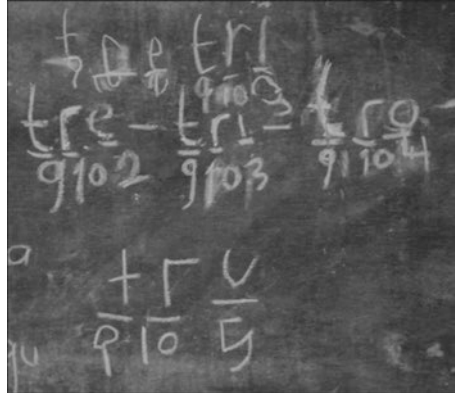 tri
9 10 3
tre - tri - tro -
9 10 2 9 10 3 9 10 4
a
t r u
9 10 5